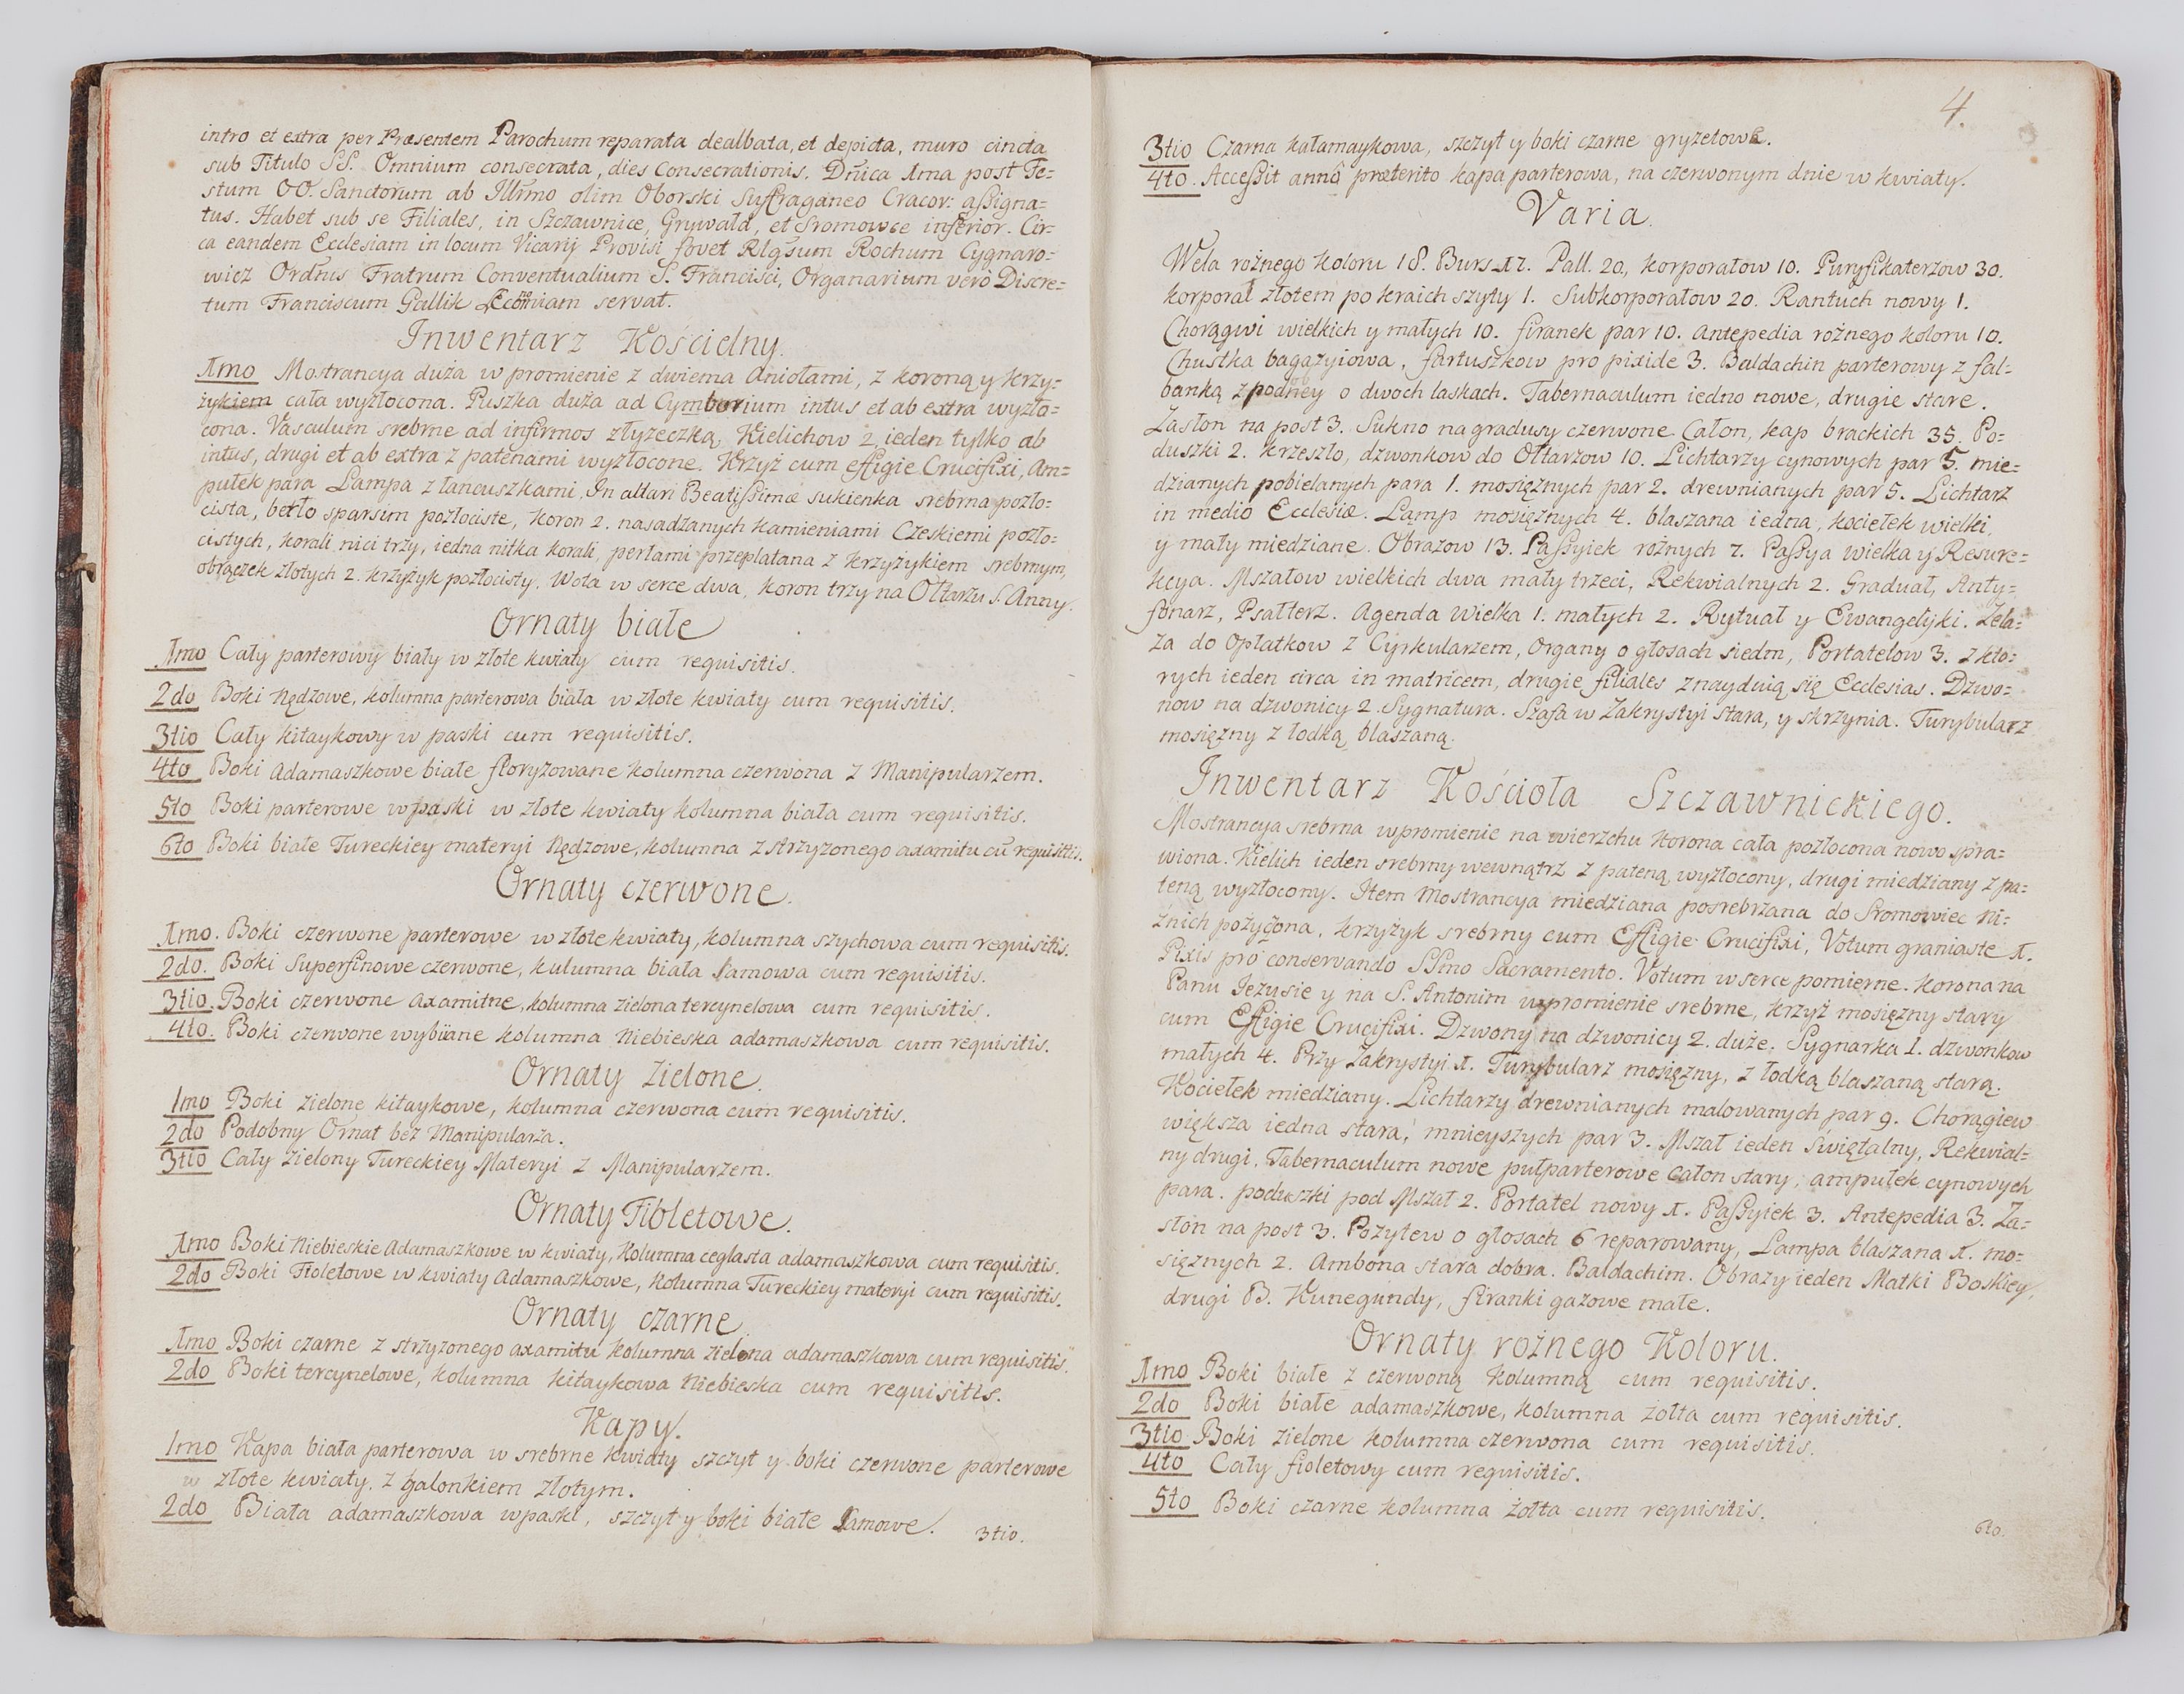 intro et extra per Præsentem Parochum reparata dealbata, et depicta, muro cincta
sub Titulo SS. Omnium consecrata, dies Consecrationis. Dnica Ima post Fe=
stum OO. Sanctorum ab Illrmo olim Oborski Suffraganeo Cracov: assigna=
tus. Habet sub se Filiales, in Szczawnice, Grywałd, et Sromowce inferior. Cir=
ca eandem Ecclesiam in locum Vicarij Provisi fovet Rlgsum Rochum Cygnaro=
wicz Ordnis Fratrum Conventualium S. Francisci, Organarium verò Discre=
tum Franciscum Gallik servat.
Inwentarz Kościelny.
Imo Mostrancya duża w promienie z dwiema Aniołami, z koroną y krzy=
żykiem cała wyzłocona. Puszka duża ad Cymborium intus et ab extra wyzło=
cona. Vasculum srebrne ad infirmos z łyżeczką, Kielichow 2, ieden tylko ab
intus, drugi et ab extra z patenami wyzłocone. Krzyż cum effigie Crucifixi, Am=
pułek para Lampa z łancuszkami, In altari Beatissimæ sukienka srebrna pozło=
cista, berło sparsim pozłociste, koron 2. nasadzanych kamieniami Czeskiemi pozło=
cistych, korali nici trzy, iedna nitka korali, perłami przeplatana z krzyżykiem srebrnym,
obrączek złotych 2. krzyżyk pozłocisty. Wota w serce dwa, koron trzy na Ołtarzu S. Anny.
Ornaty białe
Imo Cały parterowy biały w złote kwiaty cum requisitis.
2do Boki Rędzowe, kolumna parterowa biała w złote kwiaty cum requisitis.
3tio Cały kitaykowy w paski cum requisitis.
4to Boki Adamaszkowe białe floryzowane kolumna czerwona z Manipularzem.
5to Boki parterowe w paski w złote kwiaty kolumna biała cum requisitis.
6to Boki białe Tureckiey materyi Rędzowe, kolumna z strzyzonego axamitu cū requisitis.
Ornaty czerwone.
Imo. Boki czerwone parterowe w złote kwiaty, kolumna szychowa cum requisitis.
2do. Boki Superfinowe czerwone, kulumna biała lamowa cum requisitis.
3tio. Boki czerwone axamitne, kolumna zielona tercynelowa cum requisitis.
4to. Boki czerwone wybiiane kolumna niebieska adamaszkowa cum requisitis.
Ornaty Zielone.
1mo Boki zielone kitaykowe, kolumna czerwona cum requisitis.
2do Podobny Ornat bez Manipularza.
3tio Cały zielony Tureckiey Materyi z Manipularzem.
Ornaty Fioletowe.
Imo Boki Niebieskie Adamaszkowe w kwiaty, kolumna ceglasta adamaszkowa cum requisitis.
2do Boki Fioletowe w kwiaty Adamaszkowe, kolumna Tureckiey materyi cum requisitis.
Ornaty czarne
Imo Boki czarne z strzyzonego axamitu kolumna zielona adamaszkowa cum requisitis.
2do Boki tercynelowe, kolumna kitaykowa niebieska cum requisitis.
Kapy.
1mo Kapa biała parterowa w srebrne kwiaty szczyt y boki czerwone parterowe
w złote kwiaty. z galonkiem złotym.
2do Biała adamaszkowa w paski, szczyt y boki białe lamowe. 3tio.
4.
3tio Czarna kałamaykowa, szczyt y boki czarne gryzetowe.
4to. Accessit annô præterito kapa parterowa, na czerwonym dnie w kwiaty.
Varia.
Wela rożnego koloru 18. Burs 17. Pall. 20, korporałow 10. Puryfikaterzow 30.
korporał złotem po kraich szyty 1. Subkorporałow 20. Rantuch nowy 1.
Chorągwi wielkich y małych 10. firanek par 10. Antepedia rożnego koloru 10.
Chustka bagażyiowa, fartuszkow pro pixide 3. Baldachin parterowy z fal=
banką o dwoch laskach. Tabernaculum iedno nowe, drugie stare.
Zasłon na post 3. Sukno na gradusy czerwone Całon, kap brackich 35. Po=
duszki 2. krzeszło, dzwonkow do Ołtarzow 10. Lichtarzy cynowych par 5. mie=
dzianych pobielanych para 1. mosiężnych par 2. drewnianych par 5. Lichtarz
in medio Ecclesiæ. Lamp mosiężnych 4. blaszana iedna, kociełek wielki,
y mały miedziane. Obrazow 13. Passyiek rożnych 7. Passya wielka y Resure=
kcya. Mszałow wielkich dwa mały trzeci, Rekwialnych 2. Graduał, Anty=
fonarz, Psałterz. Agenda wielka 1. małych 2. Rytuał y Ewangelijki. Zela=
za do opłatkow z Cyrkularzem, Organy o głosach siedm, Portatelow 3. z kto=
rych ieden circa in matricem, drugie filiales znayduią się Ecclesias. Dzwo=
now na dzwonicy 2. Sygnatura. Szafa w Zakrystyi stara, y skrzynia. Turybularz
mosiężny z łodką blaszaną.
Inwentarz Kościoła Szczawnickiego.
Mostrancya srebrna w promienie na wierzchu korona cała pozłocona nowo spra=
wiona. Kielich ieden srebrny wewnątrz z pateną wyzłocony, drugi miedziany z pa=
teną wyzłocony. Item Mostrancya miedziana posrebrzana do Sromowiec Ni=
żnich pożyczona, krzyżyk srebrny cum Effigie Crucifixi, Votum graniaste 1.
Pixis pro conservando SSmo Sacramento. Votum w serce pomierne. Korona na
Panu Jezusie y na S. Antonim w promienie srebrne, krzyż mosiężny stary
cum Effigie Crucifixi. Dzwony na dzwonicy 2. duże. Sygnarka 1. dzwonkow
małych 4. Przy Zakrystyi 1. Turybularz mosiężny, z łodką blaszaną starą.
Kociełek miedziany. Lichtarzy drewnianych malowanych par 9. Chorągiew
większa iedna stara, mnieyszych par 3. Mszał ieden Swiętalny, Rekwial=
ny drugi, Tabernaculum nowe pułparterowe Całon stary, ampułek cynowych
para. poduszki pod Mszał 2. Portatel nowy 1. Passyiek 3. Antepedia 3. Za=
słon na post 3. Pozytew o głosach 6 reparowany, Lampa blaszana 1. mo=
siężnych 2. Ambona stara dobra. Baldachim. Obrazy ieden Matki Boskiey,
drugi B. Kunegundy, firanki gazowe małe.
Ornaty rożnego Koloru.
Imo Boki białe z czerwoną kolumną cum requisitis.
2do Boki białe adamaszkowe, kolumna żołta cum requisitis.
3tio Boki zielone kolumna czerwona cum requisitis.
4to Cały fioletowy cum requisitis.
5to Boki czarne kolumna żołta cum requisitis.
6to.